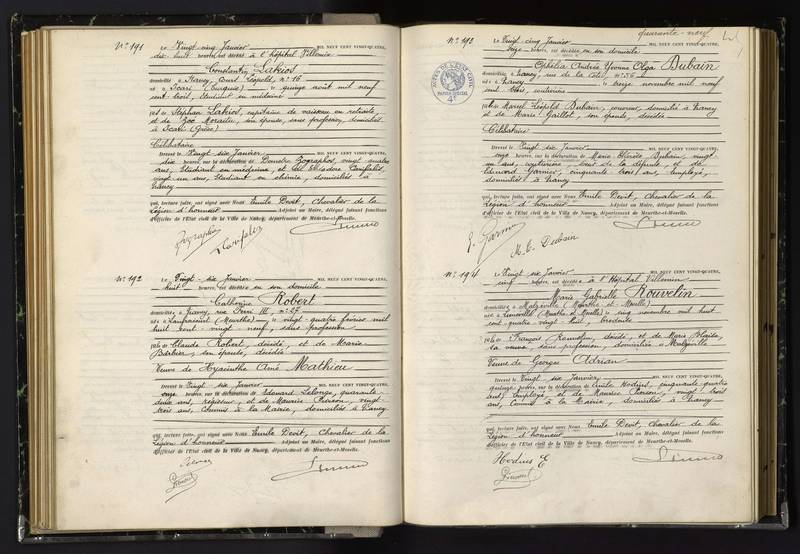 N° 191 Le Vingt-cinq Janvier MIL NEUF CENT VINGT-QUATRE,
dix-huit heures, est décédé à l'hôpital Villemin
Constantin Lakios
domicilié à Nancy, Cours Léopold, n° 16
né à Icari (Turquie) le quinze août mil neuf
cent trois, étudiant en médecine
fils de Stephan Lakios, capitaine de vaisseau en retraite,
et de Zoé, son épouse, sans profession, domiciliés
à Icari (Grèce)
Célibataire
Dressé le Vingt-six Janvier MIL NEUF CENT VINGT-QUATRE,
dix heures, sur la déclaration de Zographos, vingt-quatre
ans, étudiant en médecine, et de
vingt-un ans, étudiant en chimie, domiciliés à
Nancy
qui, lecture faite, ont signé avec Nous Emile Devit, Chevalier de la
Légion d'honneur Adjoint au Maire, délégué faisant fonctions
d'officier de l'Etat civil de la Ville de Nancy, département de Meurthe-et-Moselle.
N° 192 Le Vingt-six Janvier MIL NEUF CENT VINGT-QUATRE,
huit heures, est décédée en son domicile
Catherine Robert
domiciliée à Nancy, rue n° 27
née à (Meurthe) le vingt-quatre février mil
huit cent vingt-neuf, sans profession
fille de Claude Robert, décédé, et de Marie
Barbier, son épouse, décédée
Veuve de Hyacinthe Amé Mathieu
Dressé le Vingt-six Janvier MIL NEUF CENT VINGT-QUATRE,
onze heures, sur la déclaration de Edouard Lelong, quarante-
ans, et de Maurice Pierson, vingt-
trois ans, commis à la Mairie, domiciliés à Nancy
qui, lecture faite, ont signé avec Nous Emile Devit, Chevalier de la
Légion d'honneur Adjoint au Maire, délégué faisant fonctions
d'officier de l'Etat civil de la Ville de Nancy, département de Meurthe-et-Moselle.
quarante-neuf
N° 193 Le Vingt-cinq Janvier MIL NEUF CENT VINGT-QUATRE,
heures, est décédée en son domicile
Ophélia Andrée Yvonne Olga Dubain
domiciliée à Nancy, rue de la Côte, n° 56
née à Nancy le treize novembre mil neuf
cent trois, couturière
fille de Marcel Léopold Dubain, couvreur, domicilié à Nancy
et de Marie Gaillot, son épouse, décédée
Célibataire
Dressé le Vingt-six Janvier MIL NEUF CENT VINGT-QUATRE,
onze heures, sur la déclaration de Marie Dubain, vingt-
un ans, couturière, sœur de la défunte, et de
Edmond Garnier, cinquante-trois ans, employé,
domiciliés à Nancy
qui, lecture faite, ont signé avec Nous Emile Devit, Chevalier de la
Légion d'honneur Adjoint au Maire, délégué faisant fonctions
d'officier de l'Etat civil de la Ville de Nancy, département de Meurthe-et-Moselle.
M. E. Dubain
N° 194 Le Vingt-six Janvier MIL NEUF CENT VINGT-QUATRE,
cinq heures, est décédée à l'Hôpital Villemin
Marie Gabrielle Rouvelin
domiciliée à Malzéville (Meurthe et Moselle)
née à Lunéville (Meurthe et Moselle) le cinq novembre mil huit
cent quatre-vingt-huit, brodeuse
fille de François décédé, et de Marie
sa veuve, sans profession, domiciliée à Malzéville
Veuve de Georges Adrian
Dressé le Vingt-six Janvier MIL NEUF CENT VINGT-QUATRE,
quatorze heures, sur la déclaration de Emile Hodius, cinquante-quatre
ans, employé, et de Maurice Pierson, vingt-trois
ans, Commis à la Mairie, domiciliés à Nancy
qui, lecture faite, ont signé avec Nous Emile Devit, Chevalier de la
Légion d'honneur Adjoint au Maire, délégué faisant fonctions
d'officier de l'Etat civil de la Ville de Nancy, département de Meurthe-et-Moselle.
Hodius E